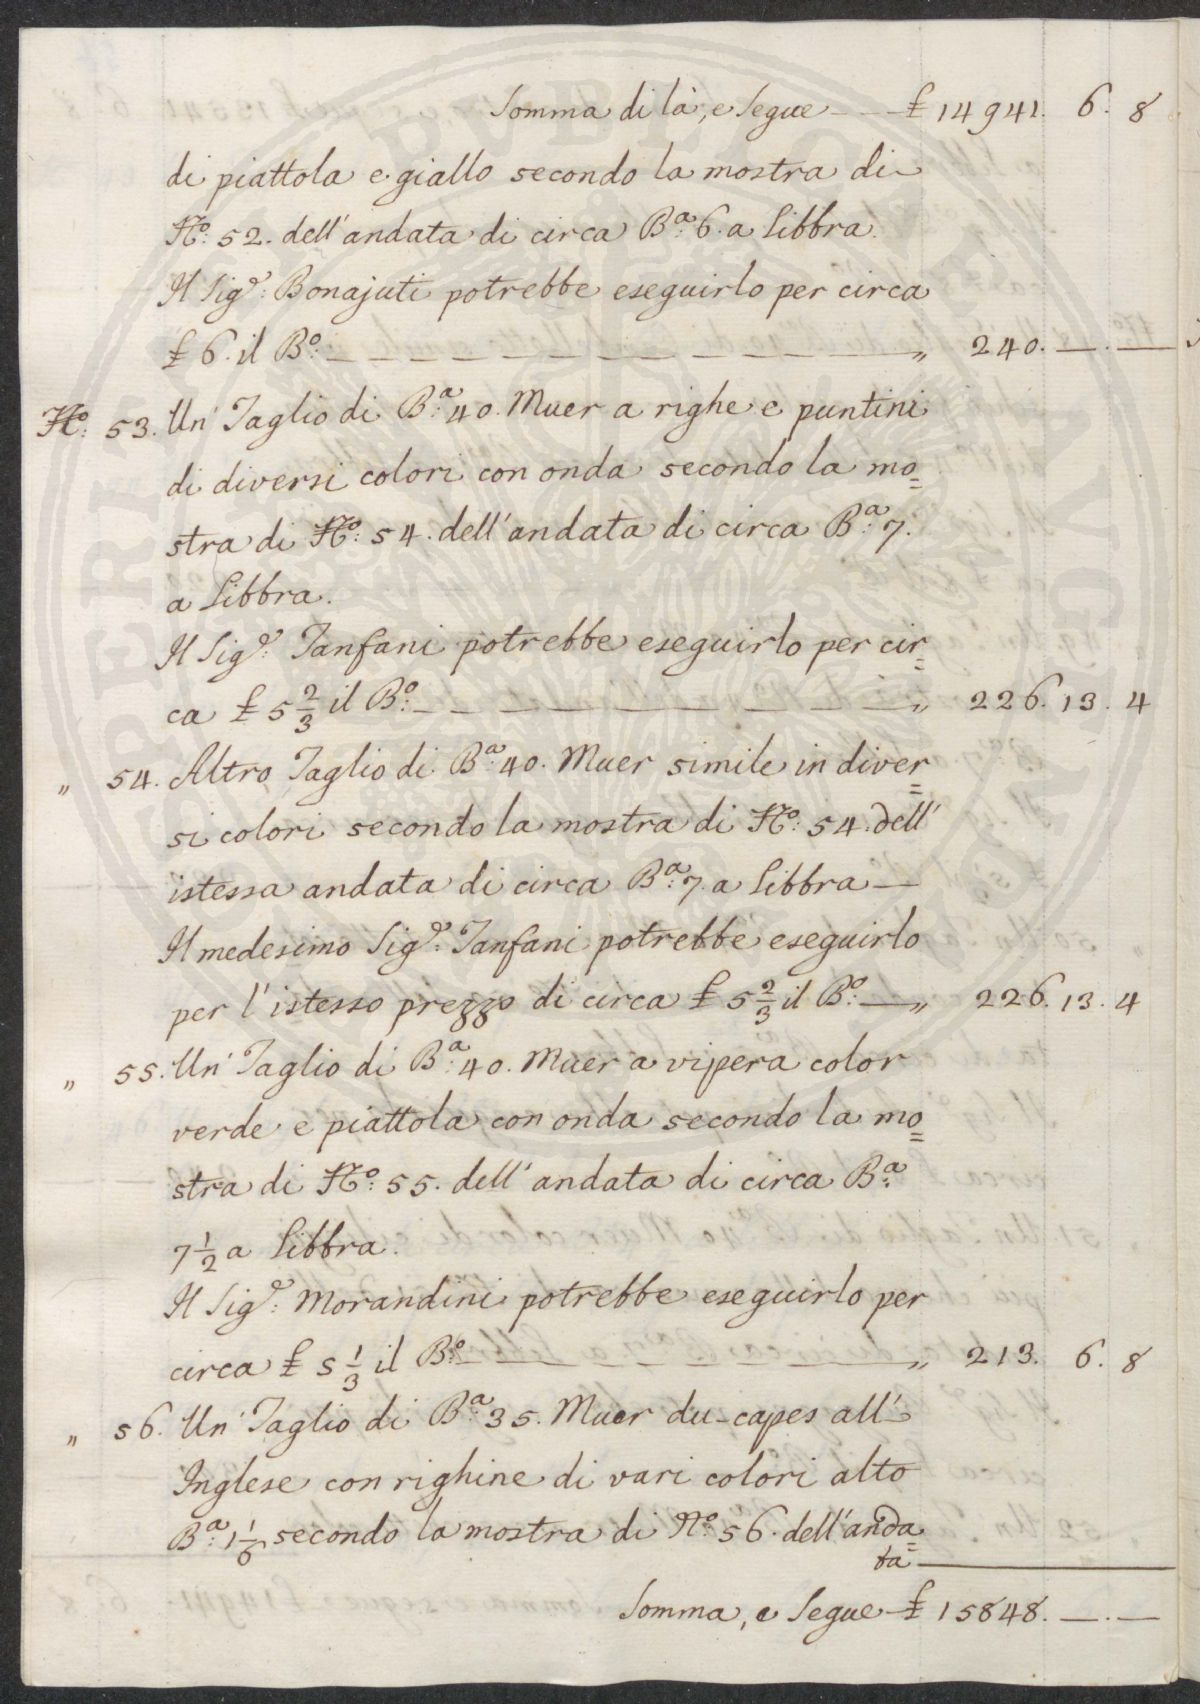 Somma di là, e Segue — — £ 14941. 6. 8
di piattola e giallo secondo la mostra di
N.o 52. dell'andata di circa B.a 6. a Libbra.
Il Sig.e Bonajuti potrebbe eseguirlo per circa
£ 6. il B.o — — — — — — — — — „ 240. — . —
N.o 53. Un' Taglio di B.a 40. Muer a righe e puntini
di diversi colori con onda secondo la mo=
stra di N.o 54. dell'andata di circa B.a 7.
a Libbra.
Il Sig.e Tanfani potrebbe eseguirlo per cir=
ca £ 5 2/3 il B.o — — — — — — — „ 226. 13. 4
„ 54. Altro Taglio di B.a 40. Muer simile in diver=
si colori secondo la mostra di N.o 54. dell'
istessa andata di circa B.a 7. a Libbra —
Il medesimo Sig.e Tanfani potrebbe eseguirlo
per l'istesso prezzo di circa £ 5 2/3 il B.o — „ 226. 13. 4
„ 55. Un' Taglio di B.a 40. Muer a vipera color
verde e piattola con onda secondo la mo=
stra di N.o 55. dell'andata di circa B.a
7 1/2 a Libbra.
Il Sig.e Morandini potrebbe eseguirlo per
circa £ 5 1/3 il B.o — — — — — — „ 213. 6. 8
„ 56. Un' Taglio di B.a 35. Muer du-capes all'
Inglese con righine di vari colori alto
B.a 1 1/6 secondo la mostra di N.o 56. dell'anda=
ta
Somma, e Segue £ 15848. — . —